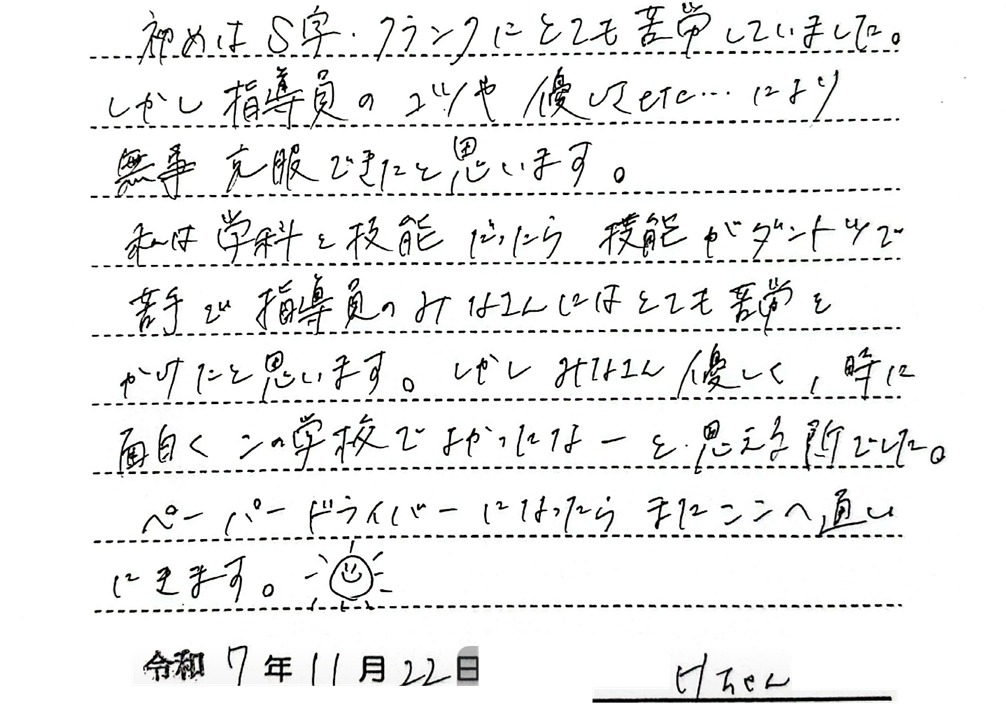 初めはS字・クランクにとても苦労していました。
しかし指導員のコツや優しさetc…により
無事克服できたと思います。
私は学科と技能だったら技能がダントツで
苦手で指導員のみなさんにはとても苦労を
かけたと思います。しかしみなさん優しく、時に
面白くこの学校でよかったなーと思える所でした。
ペーパードライバーになったらまたここへ通い
にきます。
令和7年11月22日
けちゃん